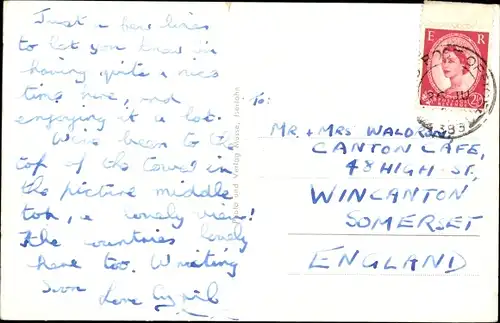 Just a few lines
to let you know im
having quite a nice
time here, and
enjoying it a lot.
We've been to the
top of the tower in
the picture middle
top, a lovely view!
The countries lovely
here too. Writing
soon
Love
To:
MR. & MRS WALDRON
CANTON CAFE,
48 HIGH ST,
WINCANTON
SOMERSET
ENGLAND
E R